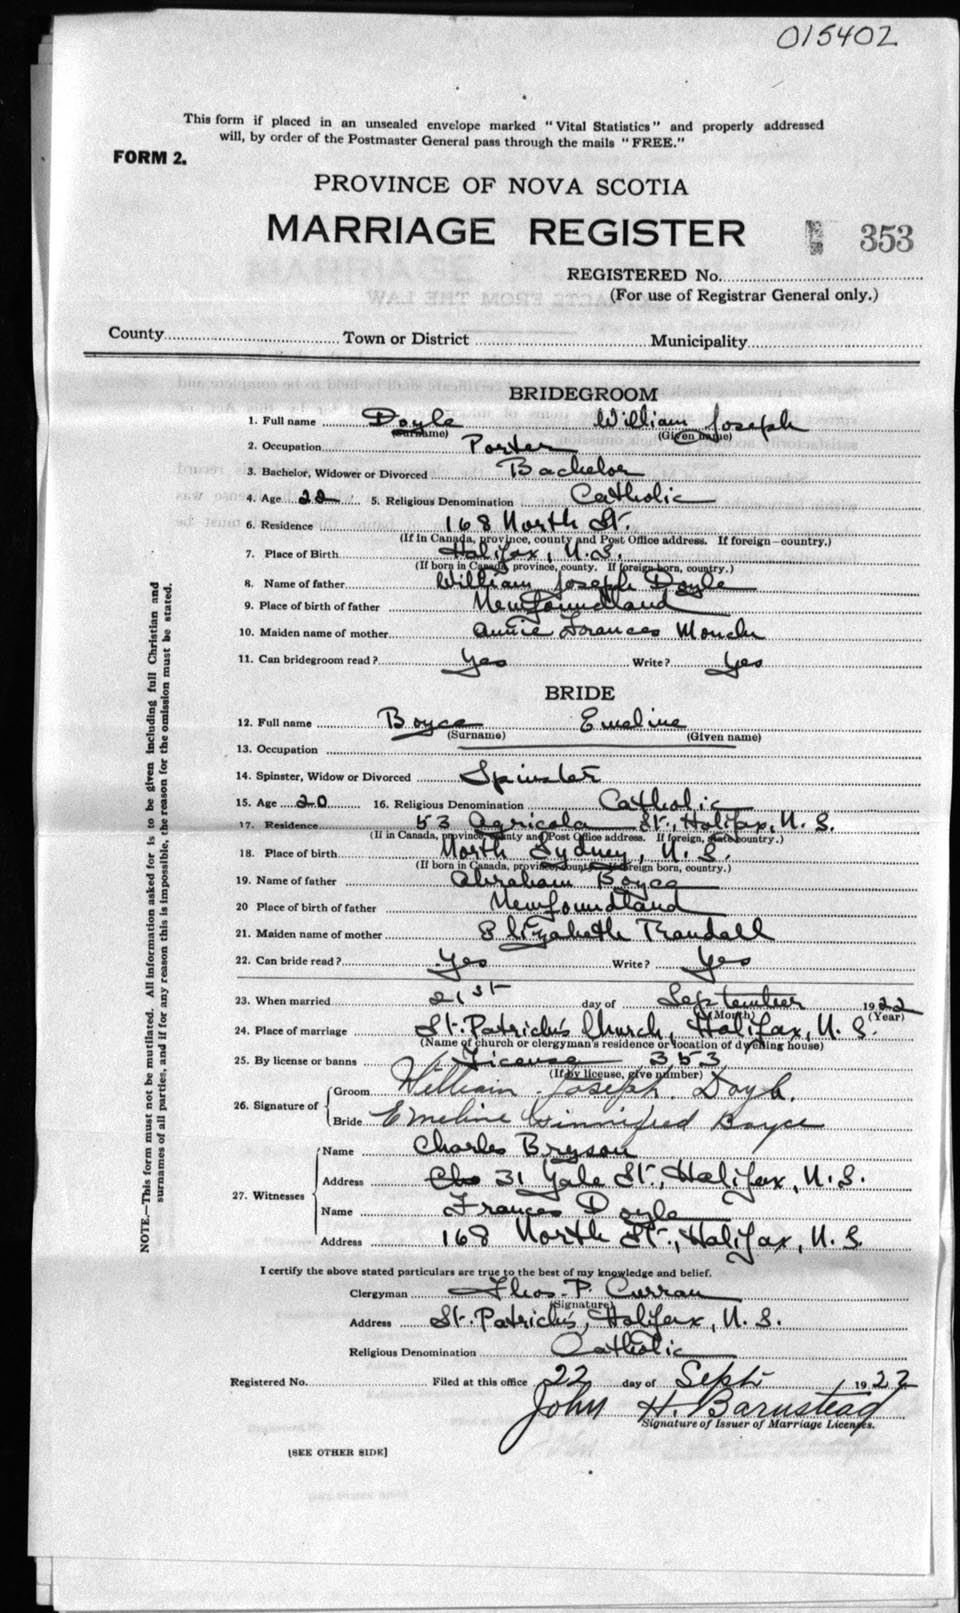 015402
This form if placed in an unsealed envelope marked "Vital Statistics" and properly addressed
will, by order of the Postmaster General pass through the mails "FREE."
FORM 2.
PROVINCE OF NOVA SCOTIA
MARRIAGE REGISTER 353
REGISTERED No.
(For use of Registrar General only.)
County Town or District Municipality
BRIDEGROOM
1. Full name Doyle William Joseph
(Surname) (Given name)
2. Occupation Porter
3. Bachelor, Widower or Divorced Bachelor
4. Age 22 5. Religious Denomination Catholic
6. Residence 168 North St.
(If in Canada, province, county and Post Office address. If foreign—country.)
7. Place of Birth Halifax, N.S.
(If born in Canada, province, county. If foreign born, country.)
8. Name of father William Joseph Doyle
9. Place of birth of father Newfoundland
10. Maiden name of mother Annie Frances
11. Can bridegroom read? Yes Write? Yes
BRIDE
12. Full name Boyce Emeline
(Surname) (Given name)
13. Occupation
14. Spinster, Widow or Divorced Spinster
15. Age 20 16. Religious Denomination Catholic
17. Residence 53 Agricola St., Halifax, N.S.
(If in Canada, province, county and Post Office address. If foreign, state country.)
18. Place of birth North Sydney, N.S.
(If born in Canada, province, county. If foreign born, country.)
19. Name of father Abraham Boyce
20 Place of birth of father Newfoundland
21. Maiden name of mother Elizabeth Trandall
22. Can bride read? Yes Write? Yes
23. When married 21st day of September 1922
(Month) (Year)
24. Place of marriage St. Patrick's Church, Halifax, N.S.
(Name of church or clergyman's residence or location of dwelling house)
25. By license or banns License 353
(If by license, give number)
26. Signature of Groom William Joseph Doyle.
Bride Emeline Winnifred Boyce
27. Witnesses
Name Charles Bryson
Address 31 Yale St., Halifax, N.S.
Name Frances Doyle
Address 168 North St., Halifax, N.S.
I certify the above stated particulars are true to the best of my knowledge and belief.
Clergyman Thos. P. Curran
(Signature)
Address St. Patrick's, Halifax, N.S.
Religious Denomination Catholic
Registered No. Filed at this office 22 day of Sept 1922
John H. Barnstead
Signature of Issuer of Marriage Licenses.
[SEE OTHER SIDE]
NOTE.—This form must not be mutilated. All information asked for is to be given including full Christian and
surnames of all parties, and if for any reason this is impossible, the reason for the omission must be stated.